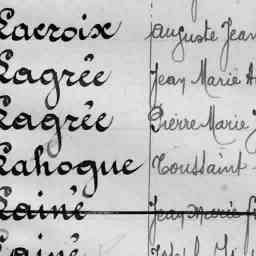 Lacroix Auguste Jean
Lagrée Jean Marie
Lagrée Pierre Marie J
Lahogue Toussaint
Lainé Jean Marie
Lainé